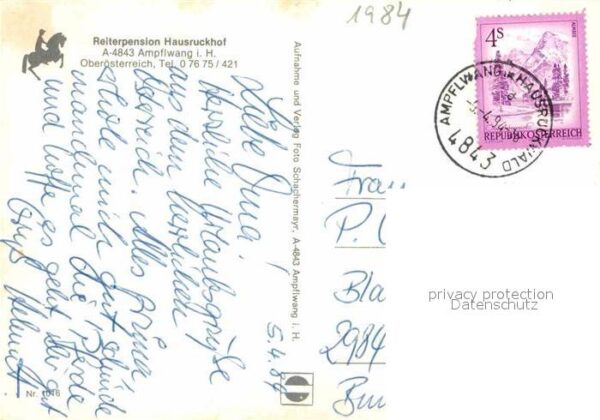 1984
Reiterpension Hausruckhof
A-4843 Ampflwang i. H.
Oberösterreich, Tel. 0 76 75 / 421
Liebe Oma!
Herzliche Urlaubsgrüße
aus dem herrlichen
Österreich. Alles Prima,
schicke mich gut
manchmal die Pferde
und hoffe es geht Dir gut
Gruß Helmut
5.4.84
Aufnahme und Verlag Foto Schachermayr, A-4843 Ampflwang i. H.
Nr. 1016
4S
ALMSEE
REPUBLIK ÖSTERREICH
AMPFLWANG * HAUSRUCKWALD
4843
Frau
P.
Bla
2984
privacy protection
Datenschutz